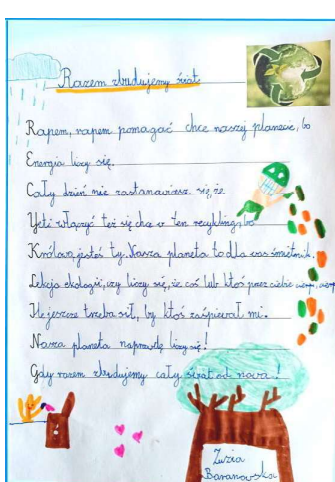 Razem zbudujemy świat
Rapem, rapem pomagać chce naszej planecie, bo
Energia liczy się.
Cały dzień nie zastanawiasz się, że
Yeti włączyć też się chce w ten recykling, bo
Królową jesteś ty. Nasza planeta to dla was śmietnik.
Lekcja ekologii, czy liczy się, że coś lub ktoś przez ciebie cierpi, cierpi
Ile jeszcze trzeba sił, by ktoś zaśpiewał mi.
Nasza planeta naprawdę liczy się!
Gdy razem zbudujemy cały świat od nowa!
Zuzia
Baranowska